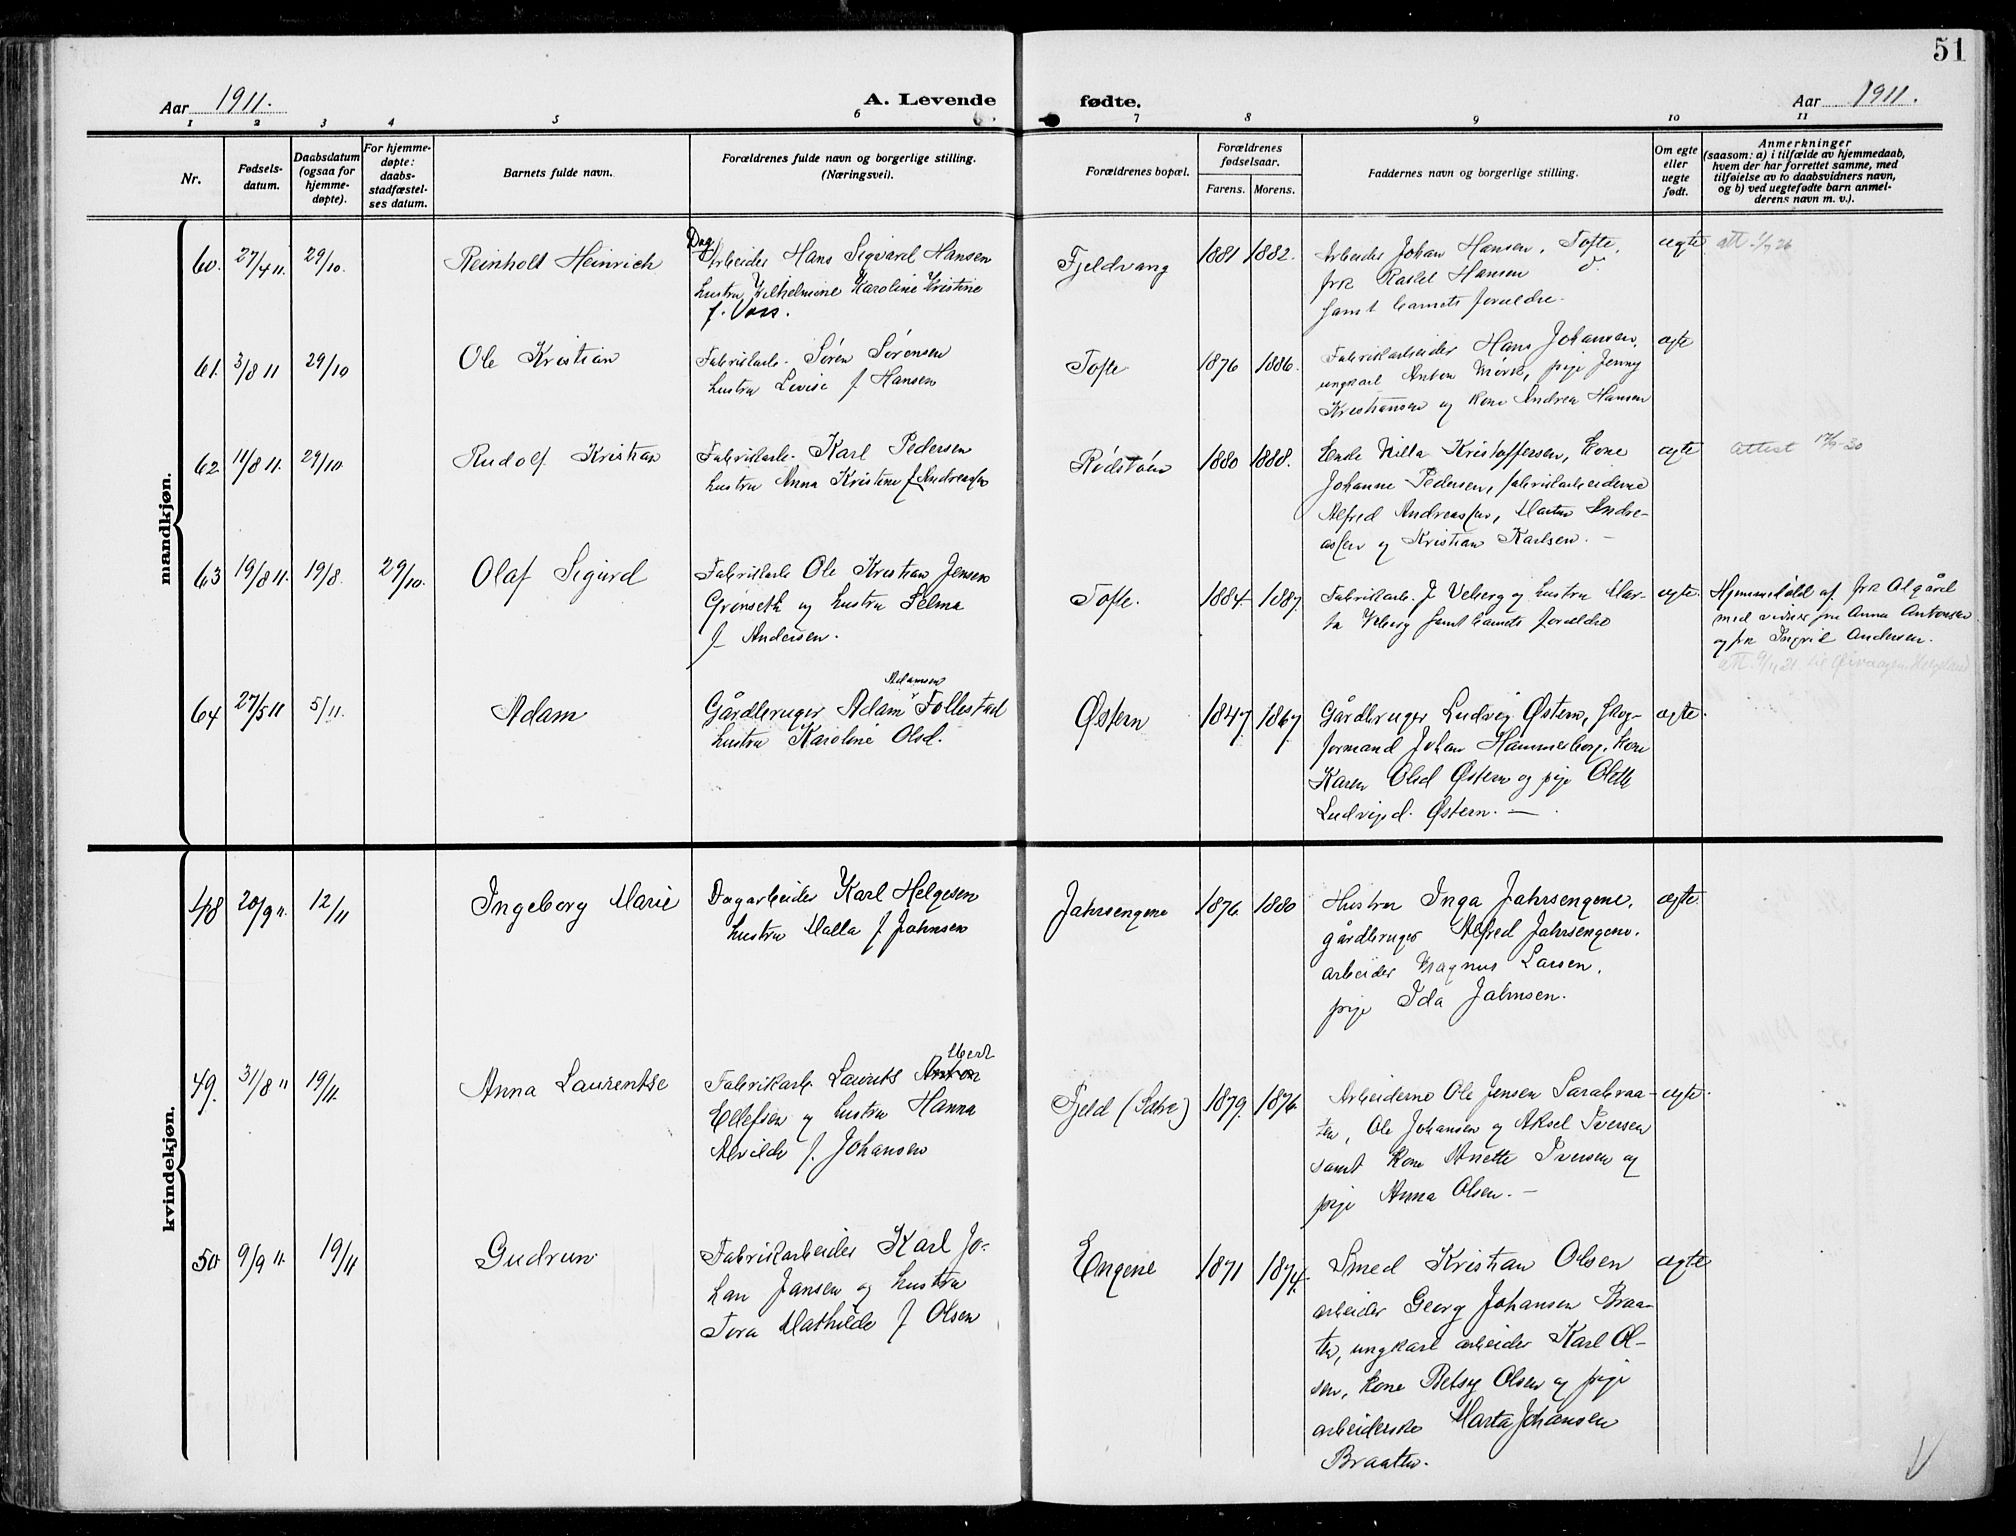 51
Aar 1911.
A. Levende fødte.
Aar 1911.
1 2 3 4 5 6 7 8 9 10 11
Nr.
Fødsels-
datum.
Daabsdatum
(ogsaa for
hjemme-
døpte).
For hjemme-
døpte:
daabs-
stadfæstel-
ses datum.
Barnets fulde navn.
Forældrenes fulde navn og borgerlige stilling.
(Næringsvei).
Forældrenes bopæl.
Forældrenes
fødselsaar.
Farens. Morens.
Faddernes navn og borgerlige stilling.
Om egte
eller
uegte
født.
Anmerkninger
(saasom: a) i tilfælde av hjemmedaab,
hvem der har forrettet samme, med
tilføielse av to daabsvidners navn,
og b) ved uegtefødte barn anmel-
derens navn m. v.).
mandkjøn.
60. 27/4 11. 29/10. Reinhold Heinrich
Dag
Arbeider Hans Sigvard Hansen
hustru Vilhelmine Karoline Kristine
f. Voss.
Fjeldvang 1881 1882.
Arbeider Johan Hansen, Tofte,
frk Rakel Hansen d.
samt barnets forældre.
ægte att. 1/7 26
61. 3/8 11 29/10 Ole Kristian
Fabrikarb. Søren Sørensen
hustru Lovise f. Hansen
Tofte 1876 1886.
Fabrikarbeider Hans Johansen,
ungkarl Anton Mørk, pige Jenny
Kristiansen og kone Andrea Hansen
ægte
62 11/8 11. 29/10. Rudolf Kristian
Fabrikarb. Karl Pedersen
hustru Anna Kristine f. Andreassen
Rødstøen 1880 1888.
Enke Milla Kristoffersen, kone
Johanne Pedersen, fabrikarbeiderne
Alfred Andreassen, Martin Andre-
assen og Kristian Karlsen. –
ægte Attest 17/9-30
63 19/8 11. 19/8. 29/10. Olaf Sigurd
Fabrikarb Ole Kristian Jensen
Grønseth og hustru Selma
f Andersen.
Tofte. 1884. 1887.
Fabrikarb. J Veberg og hustru Mar-
ta Veberg samt barnets forældre
ægte.
Hjemmedøbt af frk Algård
med vidner fru Anna Antonsen
og frk Ingrid Andersen.
64 27/5 11 5/11. Adam
Adamsen
Gårdbruger Adam Follestad
hustru Karoline Olsd.
Østern 1847. 1867.
Gårdbruger Ludvig Østern, skog-
formand Johan Hammerborg, kone
Karen Olsd Østern og pige Olette
Ludvigsd. Østern. –
ægte.
kvindekjøn.
48 20/9 11. 12/11 Ingeborg Marie
Dagarbeider Karl Helgesen
hustru Malla f Johnsen
Jahrsengene 1876. 1880
Hustru Inga Jahrsengene,
gårdbruger Alfred Jahrsengene.
arbeider Magnus Larsen,
pige Ida Johnsen.
ægte.
49. 31/8 11 19/11. Anna Laurentse
Fabrikarb. Laurits
Ellefsen og hustru Hanna
Alvilde f. Johansen
Fjeld (Sætre) 1879. 1876.
Arbeiderne Ole Jensen Sarabraa-
ten, Ole Johansen og Aksel Iversen
samt kone Anette Iversen og
pige Anna Olsen. –
ægte.
50. 9/9 11. 19/11 Gudrun
Fabrikarbeider Karl Jo-
han Jansen og hustru
Tora Mathilde f Olsen
Engene 1871 1874.
Smed Kristian Olsen
arbeider Georg Johansen Braa-
ten, ungkarl arbeider Karl Ol-
sen, kone Betsy Olsen og pige
arbeiderske Marta Johansen
Braaten.
ægte